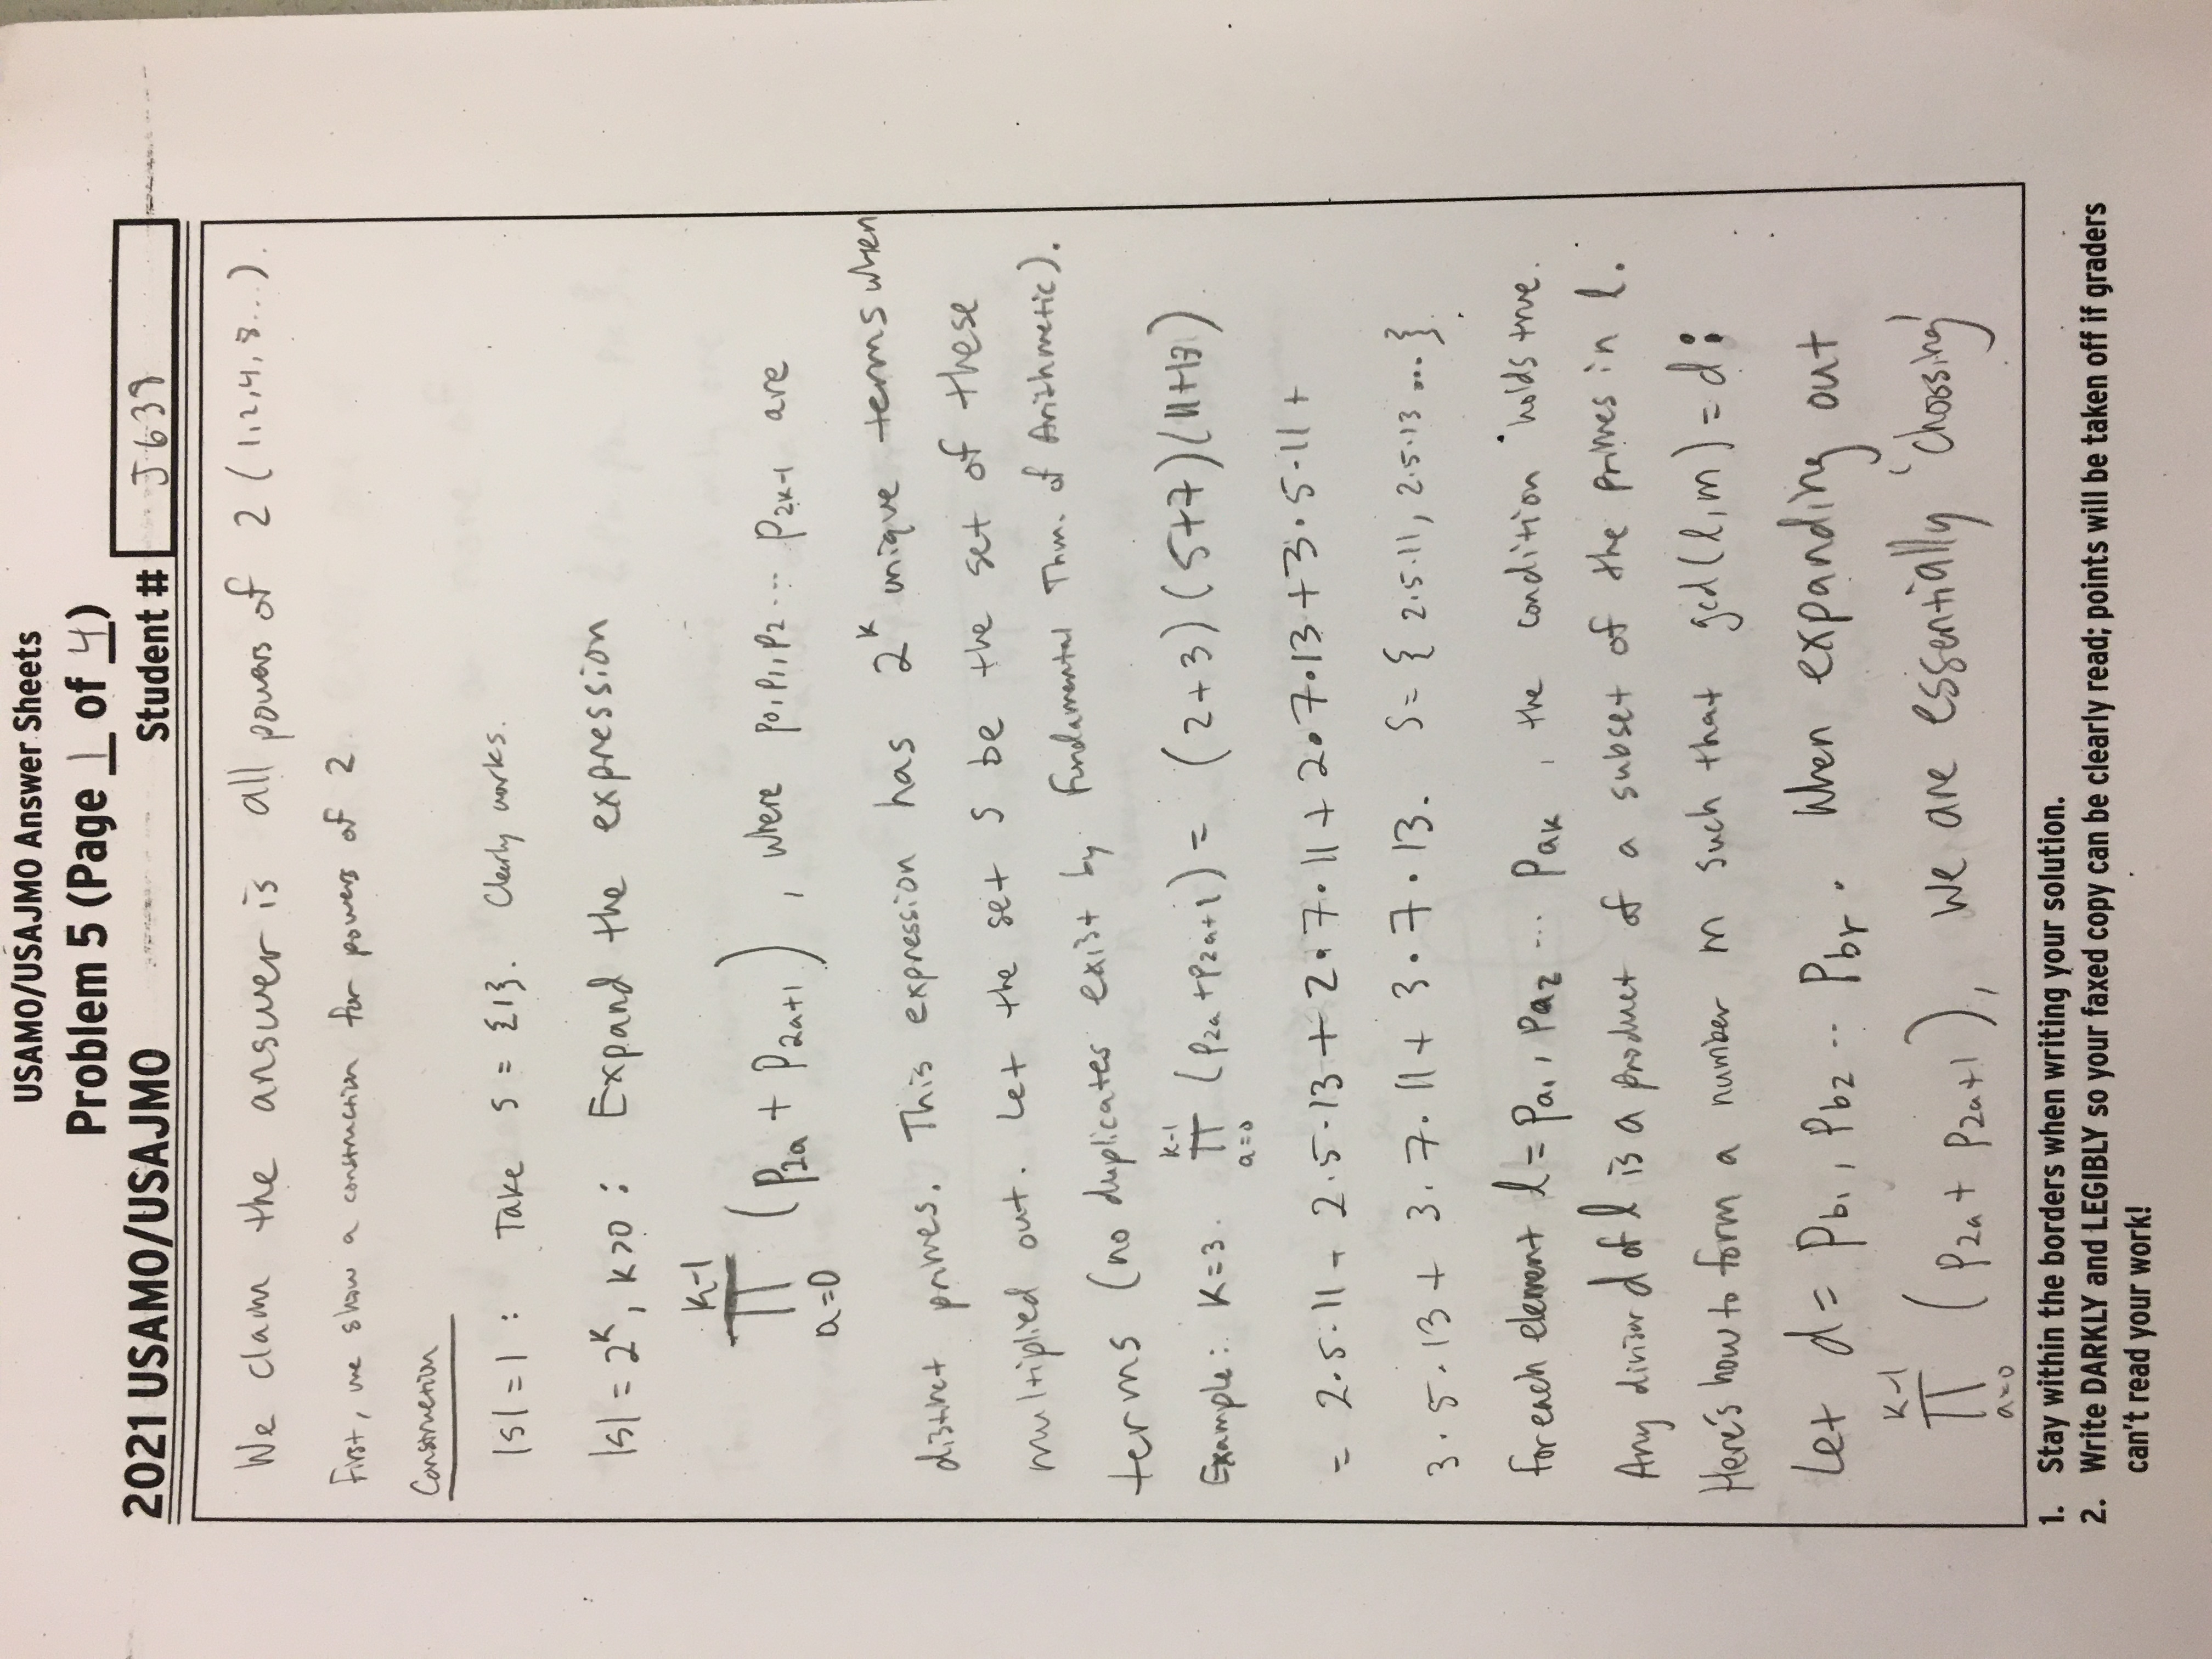 USAMO/USAJMO Answer Sheets
Problem 5 (Page 1 of 4)
2021 USAMO/USAJMO Student # J638
We claim the answer is all powers of 2 (1,2,4,8...).
First, we show a construction for powers of 2.
Construction
|S|=1 : Take S = {1}. Clearly works.
|S| = 2^k, k>0 : Expand the expression
∏_{a=0}^{k-1} (p_{2a} + p_{2a+1}), where p_0, p_1, p_2 ... p_{2k-1} are
distinct primes. This expression has 2^k unique terms when
multiplied out. Let the set S be the set of these
terms (no duplicates exist by Fundamental Thm. of Arithmetic).
Example: k=3. ∏_{a=0}^{k-1} (p_{2a} + p_{2a+1}) = (2+3)(5+7)(11+13)
= 2·5·11 + 2·5·13 + 2·7·11 + 2·7·13 + 3·5·11 +
3·5·13 + 3·7·11 + 3·7·13. S = { 2·5·11, 2·5·13 ... }.
For each element l = p_{a_1}, p_{a_2} ... p_{a_k}, the condition holds true.
Any divisor d of l is a product of a subset of the primes in l.
Here's how to form a number m such that gcd(l,m) = d:
Let d = p_{b_1}, p_{b_2} .. p_{b_r}. When expanding out
∏_{a=0}^{k-1} (p_{2a} + p_{2a+1}), we are essentially 'choosing'
1. Stay within the borders when writing your solution.
2. Write DARKLY and LEGIBLY so your faxed copy can be clearly read; points will be taken off if graders
can't read your work!